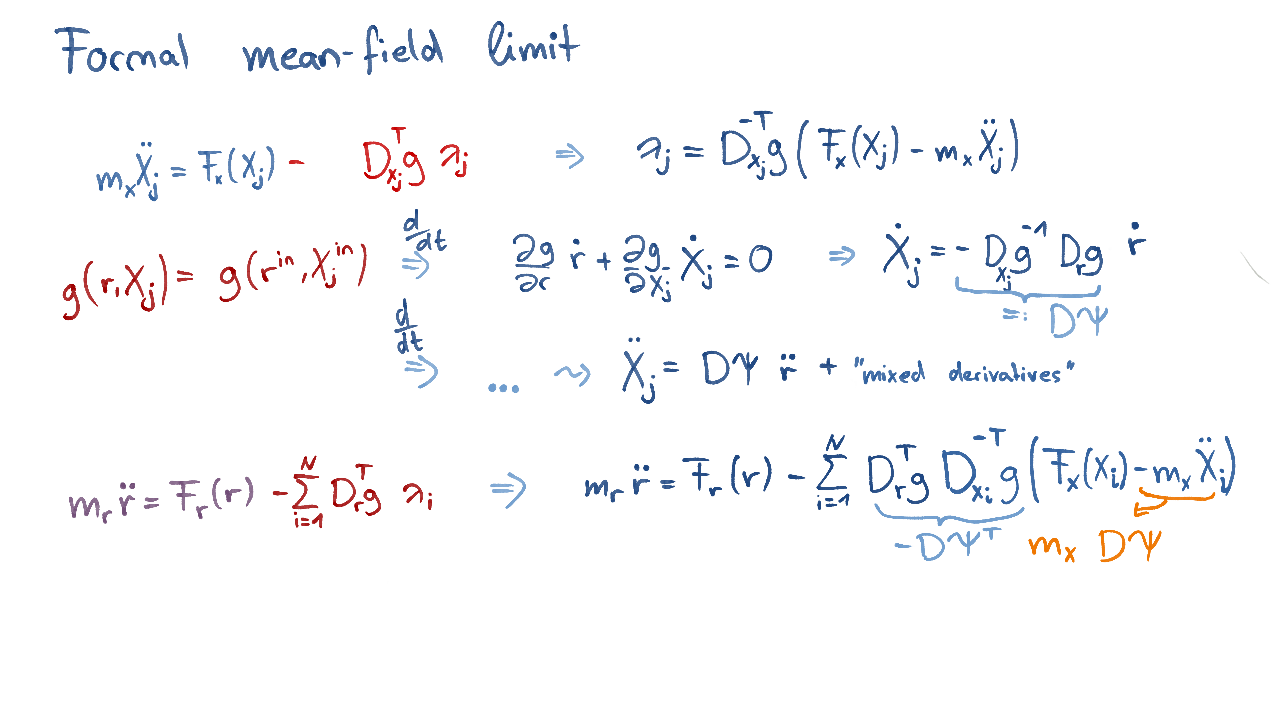 Formal mean-field limit
m_x Ẍ_j = F_x(X_j) - D_{x_j}^T g λ_j ⇒ λ_j = D_{x_j}^{-T} g (F_x(X_j) - m_x Ẍ_j)
g(r, X_j) = g(r^{in}, X_j^{in}) d/dt ⇒ ∂g/∂r ṙ + ∂g/∂X_j Ẋ_j = 0 ⇒ Ẋ_j = - D_{x_j} g^{-1} D_r g ṙ
=: DΨ
d/dt ⇒ ... ⤳ Ẍ_j = DΨ r̈ + "mixed derivatives"
m_r r̈ = F_r(r) - Σ_{i=1}^N D_r^T g λ_i ⇒ m_r r̈ = F_r(r) - Σ_{i=1}^N D_r^T g D_{x_i}^{-T} g (F_x(X_i) - m_x Ẍ_i)
-DΨ^T m_x DΨ